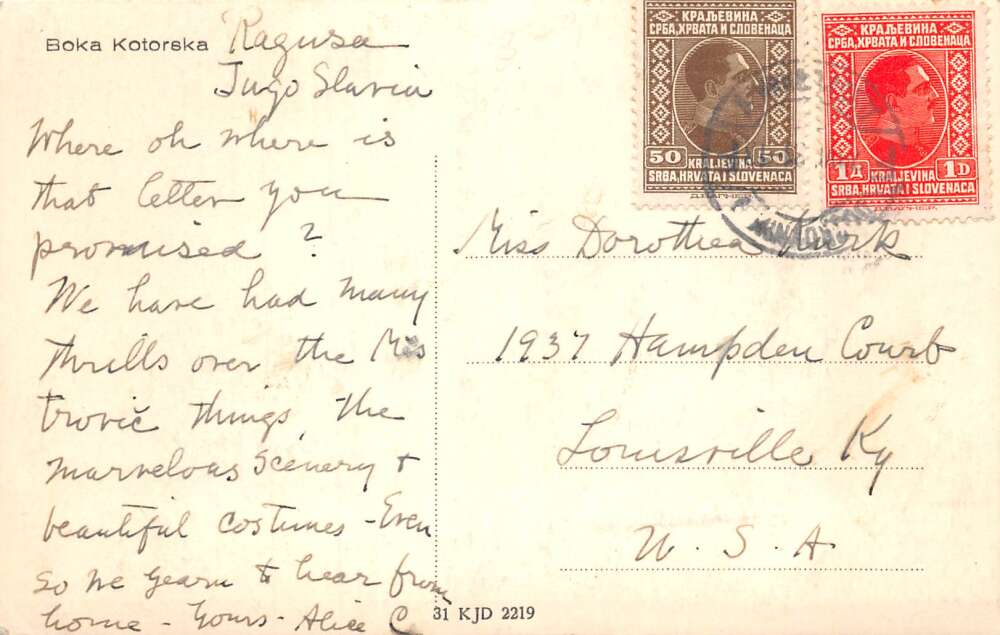 Boka Kotorska
Ragusa
Jugo Slavia
Where oh where is
that letter you
promised?
We have had many
thrills over the Mes
trovič things, the
marvelous scenery +
beautiful costumes - Even
so we yearn to hear from
home - Yours - Alice C
КРАЉЕВИНА
СРБА, ХРВАТА И СЛОВЕНАЦА
50 50
KRALJEVINA
SRBA, HRVATA I SLOVENACA
КРАЉЕВИНА
СРБА, ХРВАТА И СЛОВЕНАЦА
1Д 1D
KRALJEVINA
SRBA, HRVATA I SLOVENACA
Miss Dorothea Kirk
1937 Hampden Court
Louisville Ky
U. S. A
31 KJD 2219